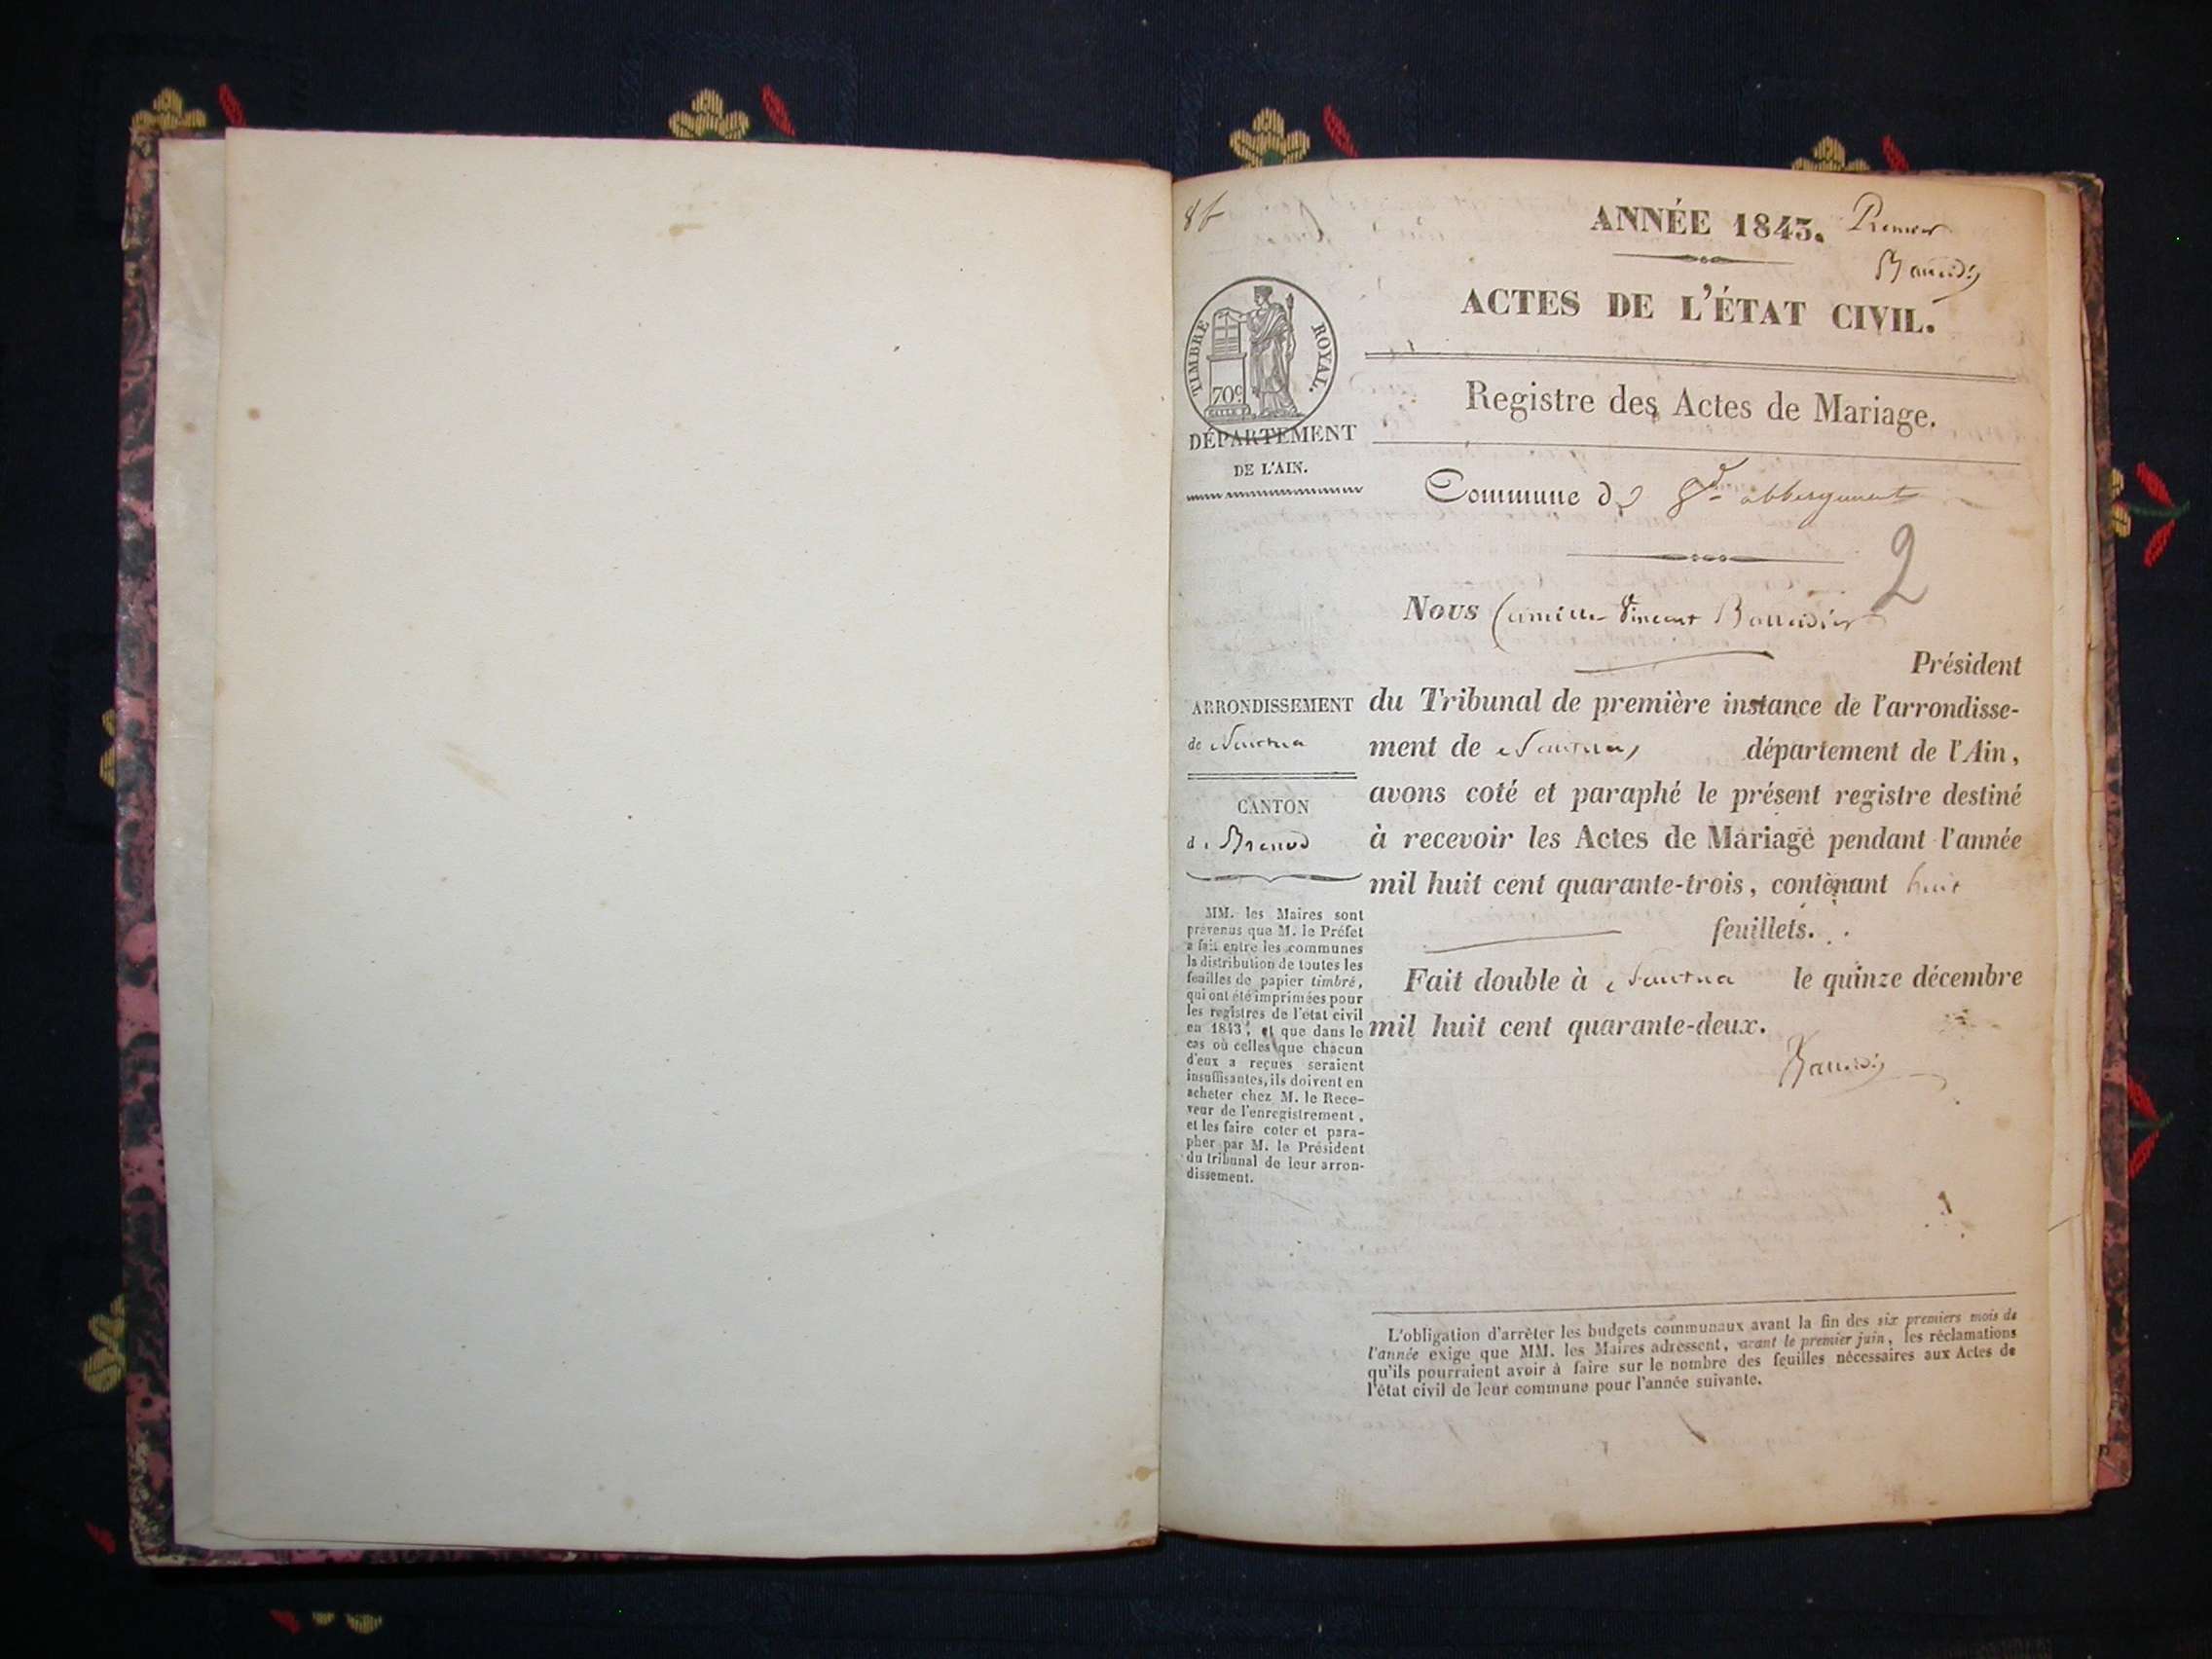 8 f
ANNÉE 1843. Premier
ACTES DE L'ÉTAT CIVIL.
TIMBRE ROYAL.
70c
Registre des Actes de Mariage.
DÉPARTEMENT
DE L'AIN.
Commune de gd abbergement
2
Nous Camille Vincent
Président
ARRONDISSEMENT
de Nantua
CANTON
de Brenod
du Tribunal de première instance de l'arrondisse-
ment de Nantua, département de l'Ain,
avons coté et paraphé le présent registre destiné
à recevoir les Actes de Mariage pendant l'année
mil huit cent quarante-trois, contenant huit
feuillets.
Fait double à Nantua le quinze décembre
mil huit cent quarante-deux.
MM. les Maires sont
prévenus que M. le Préfet
a fait entre les communes
la distribution de toutes les
feuilles de papier timbré,
qui ont été imprimées pour
les registres de l'état civil
en 1843, et que dans le
cas où celles que chacun
d'eux a reçues seraient
insuffisantes, ils doivent en
acheter chez M. le Rece-
veur de l'enregistrement,
et les faire coter et para-
pher par M. le Président
du tribunal de leur arron-
dissement.
L'obligation d'arrêter les budgets communaux avant la fin des six premiers mois de
l'année exige que MM. les Maires adressent, avant le premier juin, les réclamations
qu'ils pourraient avoir à faire sur le nombre des feuilles nécessaires aux Actes de
l'état civil de leur commune pour l'année suivante.